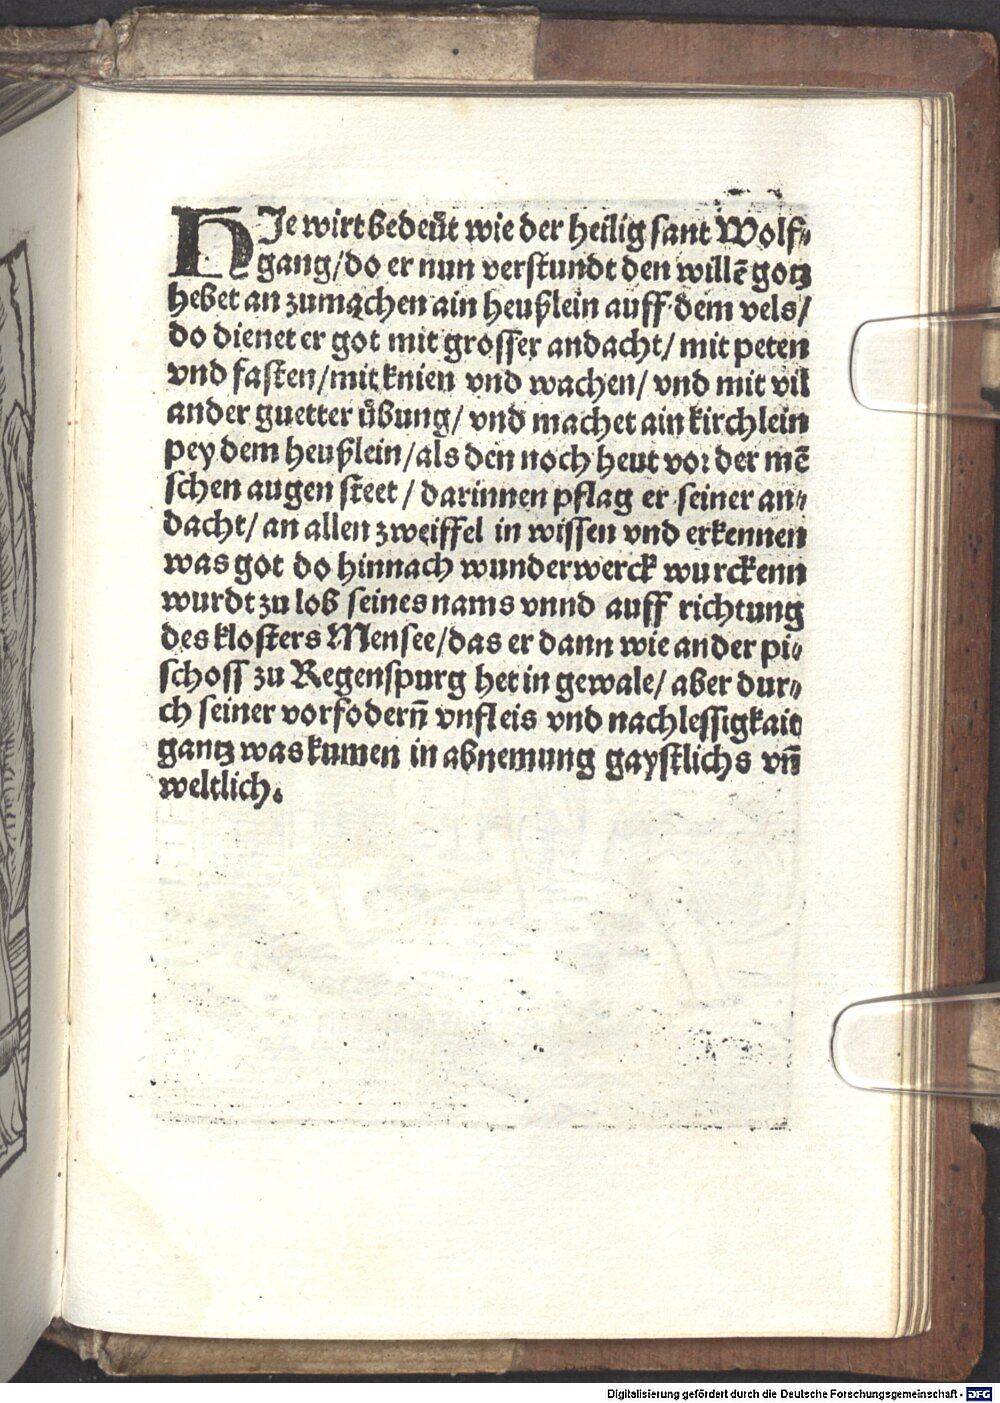 HJe wirt bedeüt wie der heilig sant Wolf⸗
gang/do er nun verstundt den willē gotz
hebet an zumachen ain heußlein auff dem vels/
do dienet er got mit grosser andacht/ mit peten
vnd fasten/mit knien vnd wachen/ vnd mit vil
ander guetter übung/ vnd machet ain kirchlein
pey dem heußlein/als den noch heut vor der mē
schen augen steet / darinnen pflag er seiner an⸗
dacht/ an allen zweiffel in wissen vnd erkennen
was got do hinnach wunderwerck wurckenn
wurdt zu lob seines nams vnnd auff richtung
des klosters Mensee/das er dann wie ander pi⸗
schoff zu Regenspurg het in gewale/ aber dur⸗
ch seiner vorfodern̄ vnfleis vnd nachlessigkait
gantz was kumen in abnemung gaystlichs vn̄
weltlich.
Digitalisierung gefördert durch die Deutsche Forschungsgemeinschaft - DFG